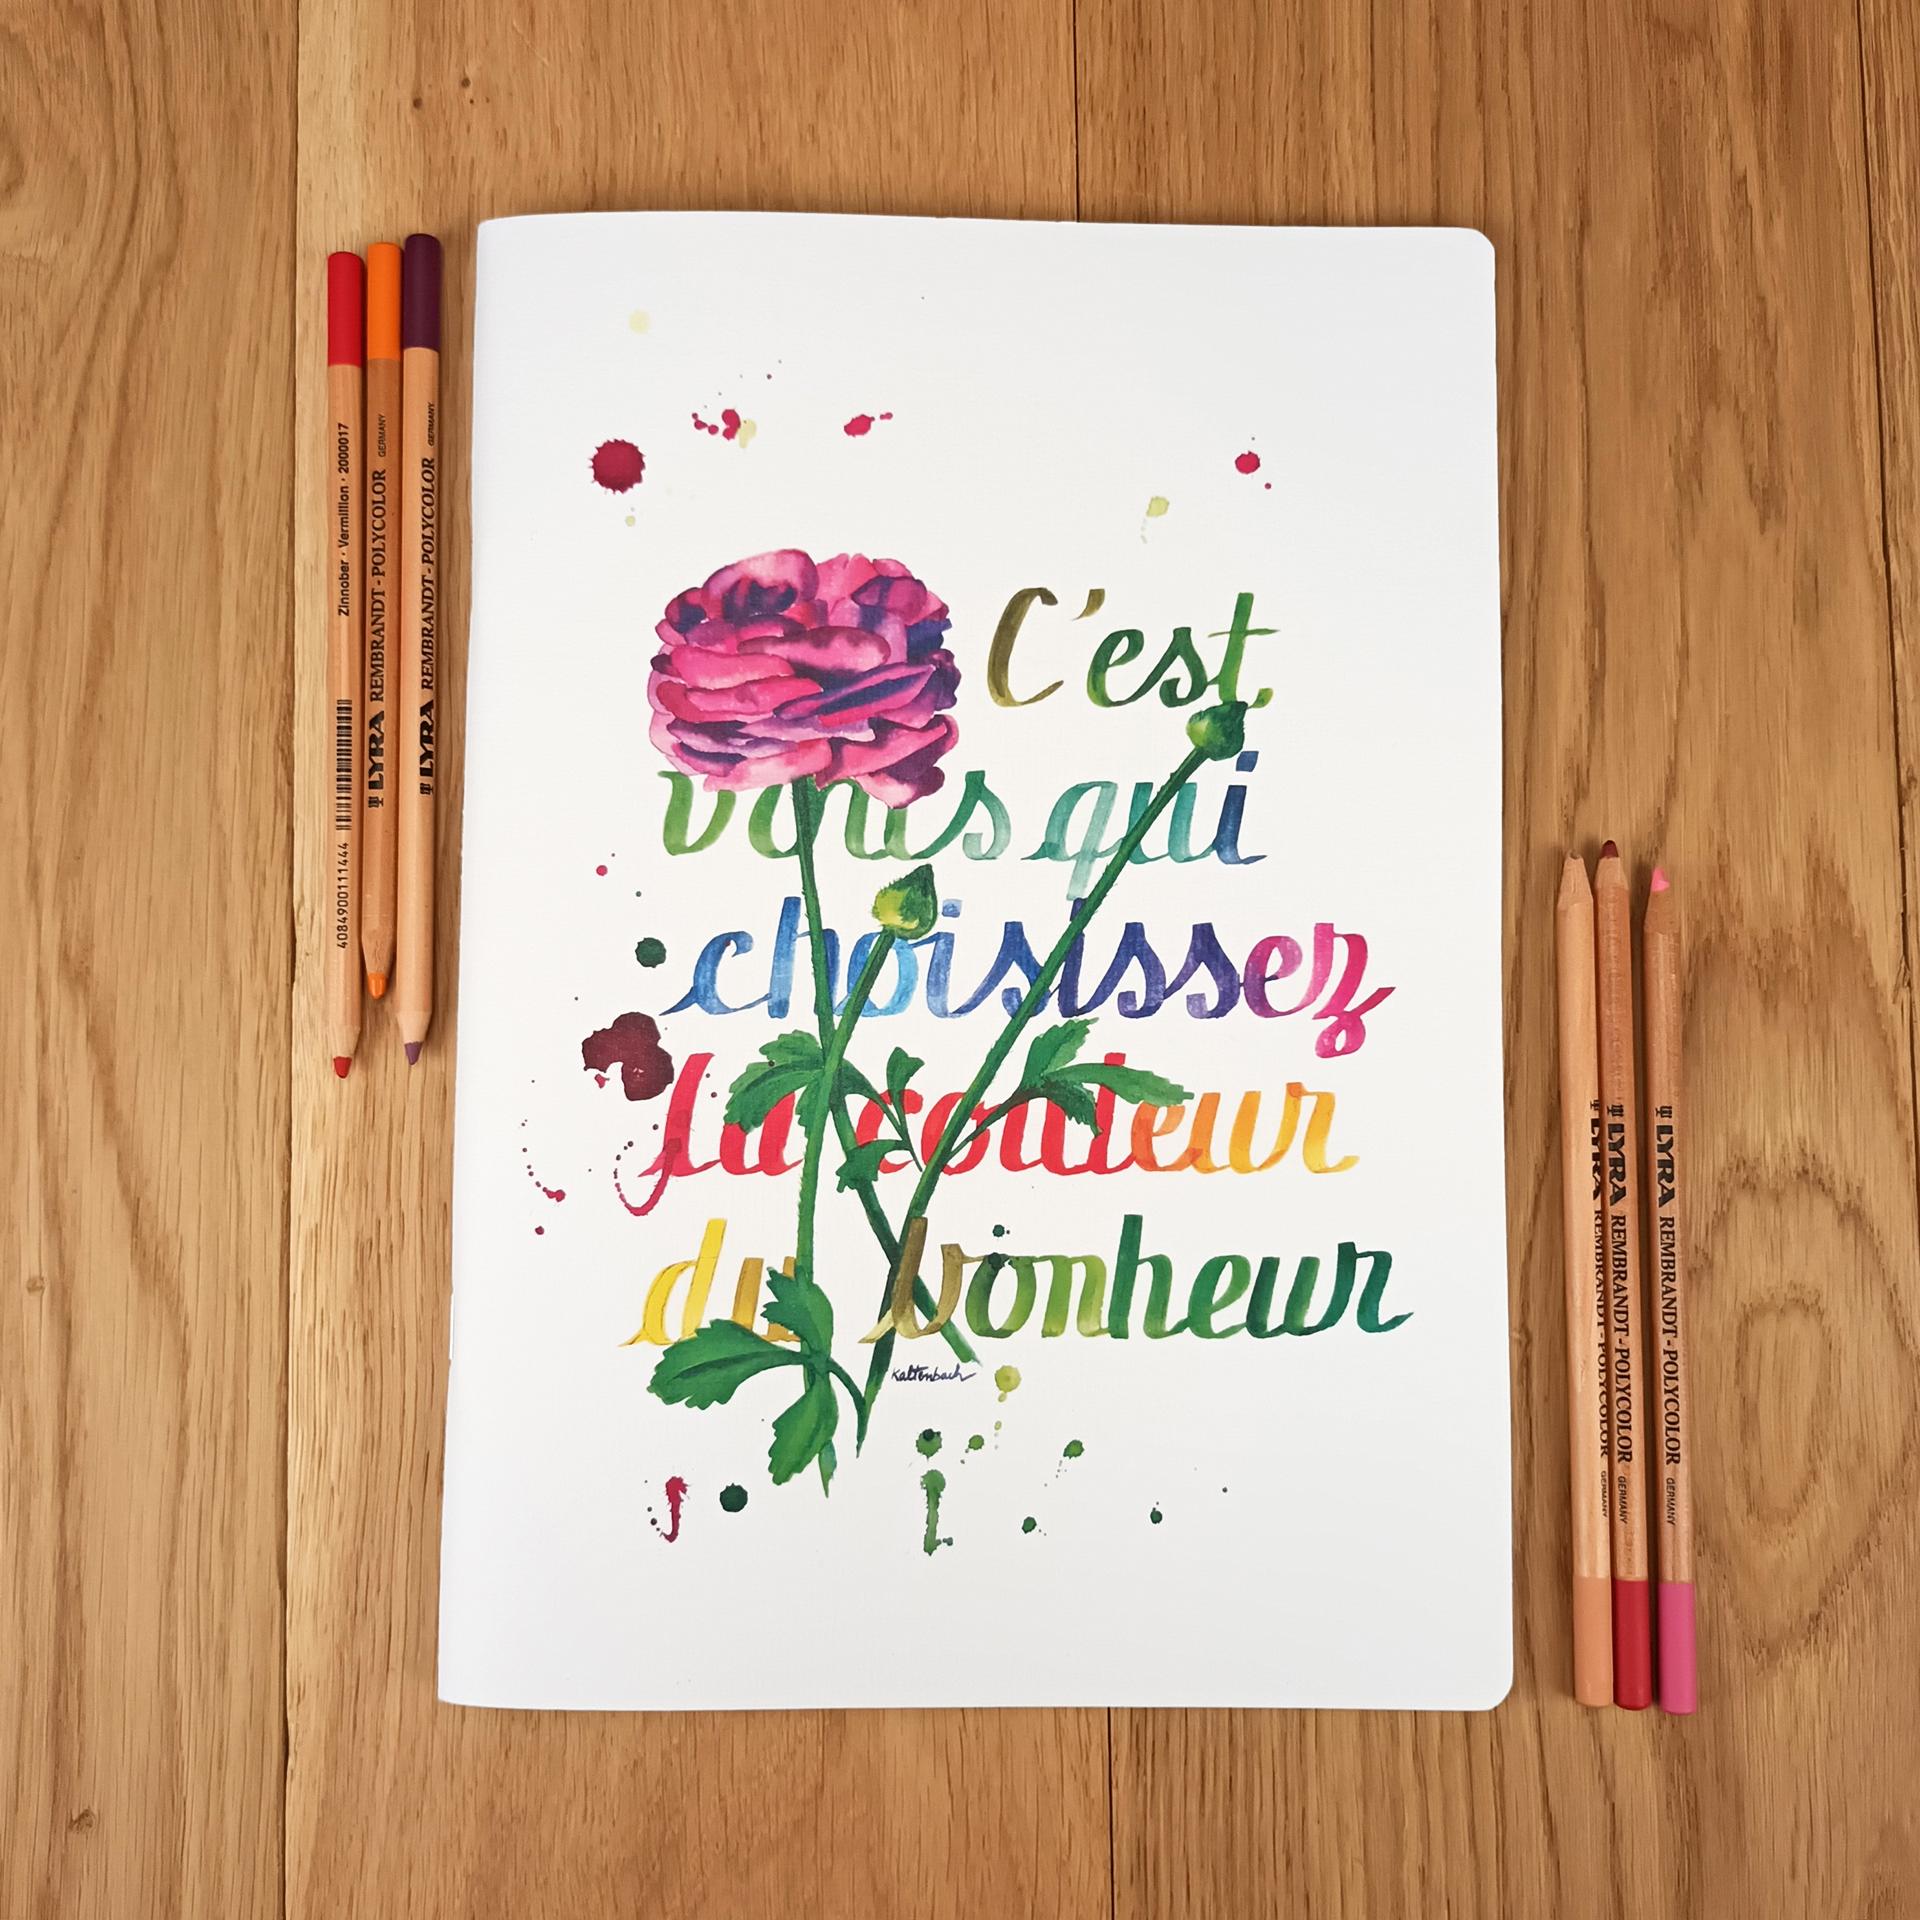 C'est
vous qui
choisissez
la couleur
du bonheur
Kaltenbach
Zinnober · Vermillion · 2000017
4084900111444
LYRA REMBRANDT - POLYCOLOR GERMANY
LYRA REMBRANDT - POLYCOLOR GERMANY
LYRA REMBRANDT - POLYCOLOR GERMANY
LYRA REMBRANDT - POLYCOLOR GERMANY
LYRA REMBRANDT - POLYCOLOR GERMANY